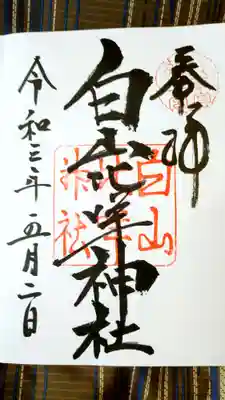 奉拝
白山比咩神社
白山
神社
令和三年五月二日